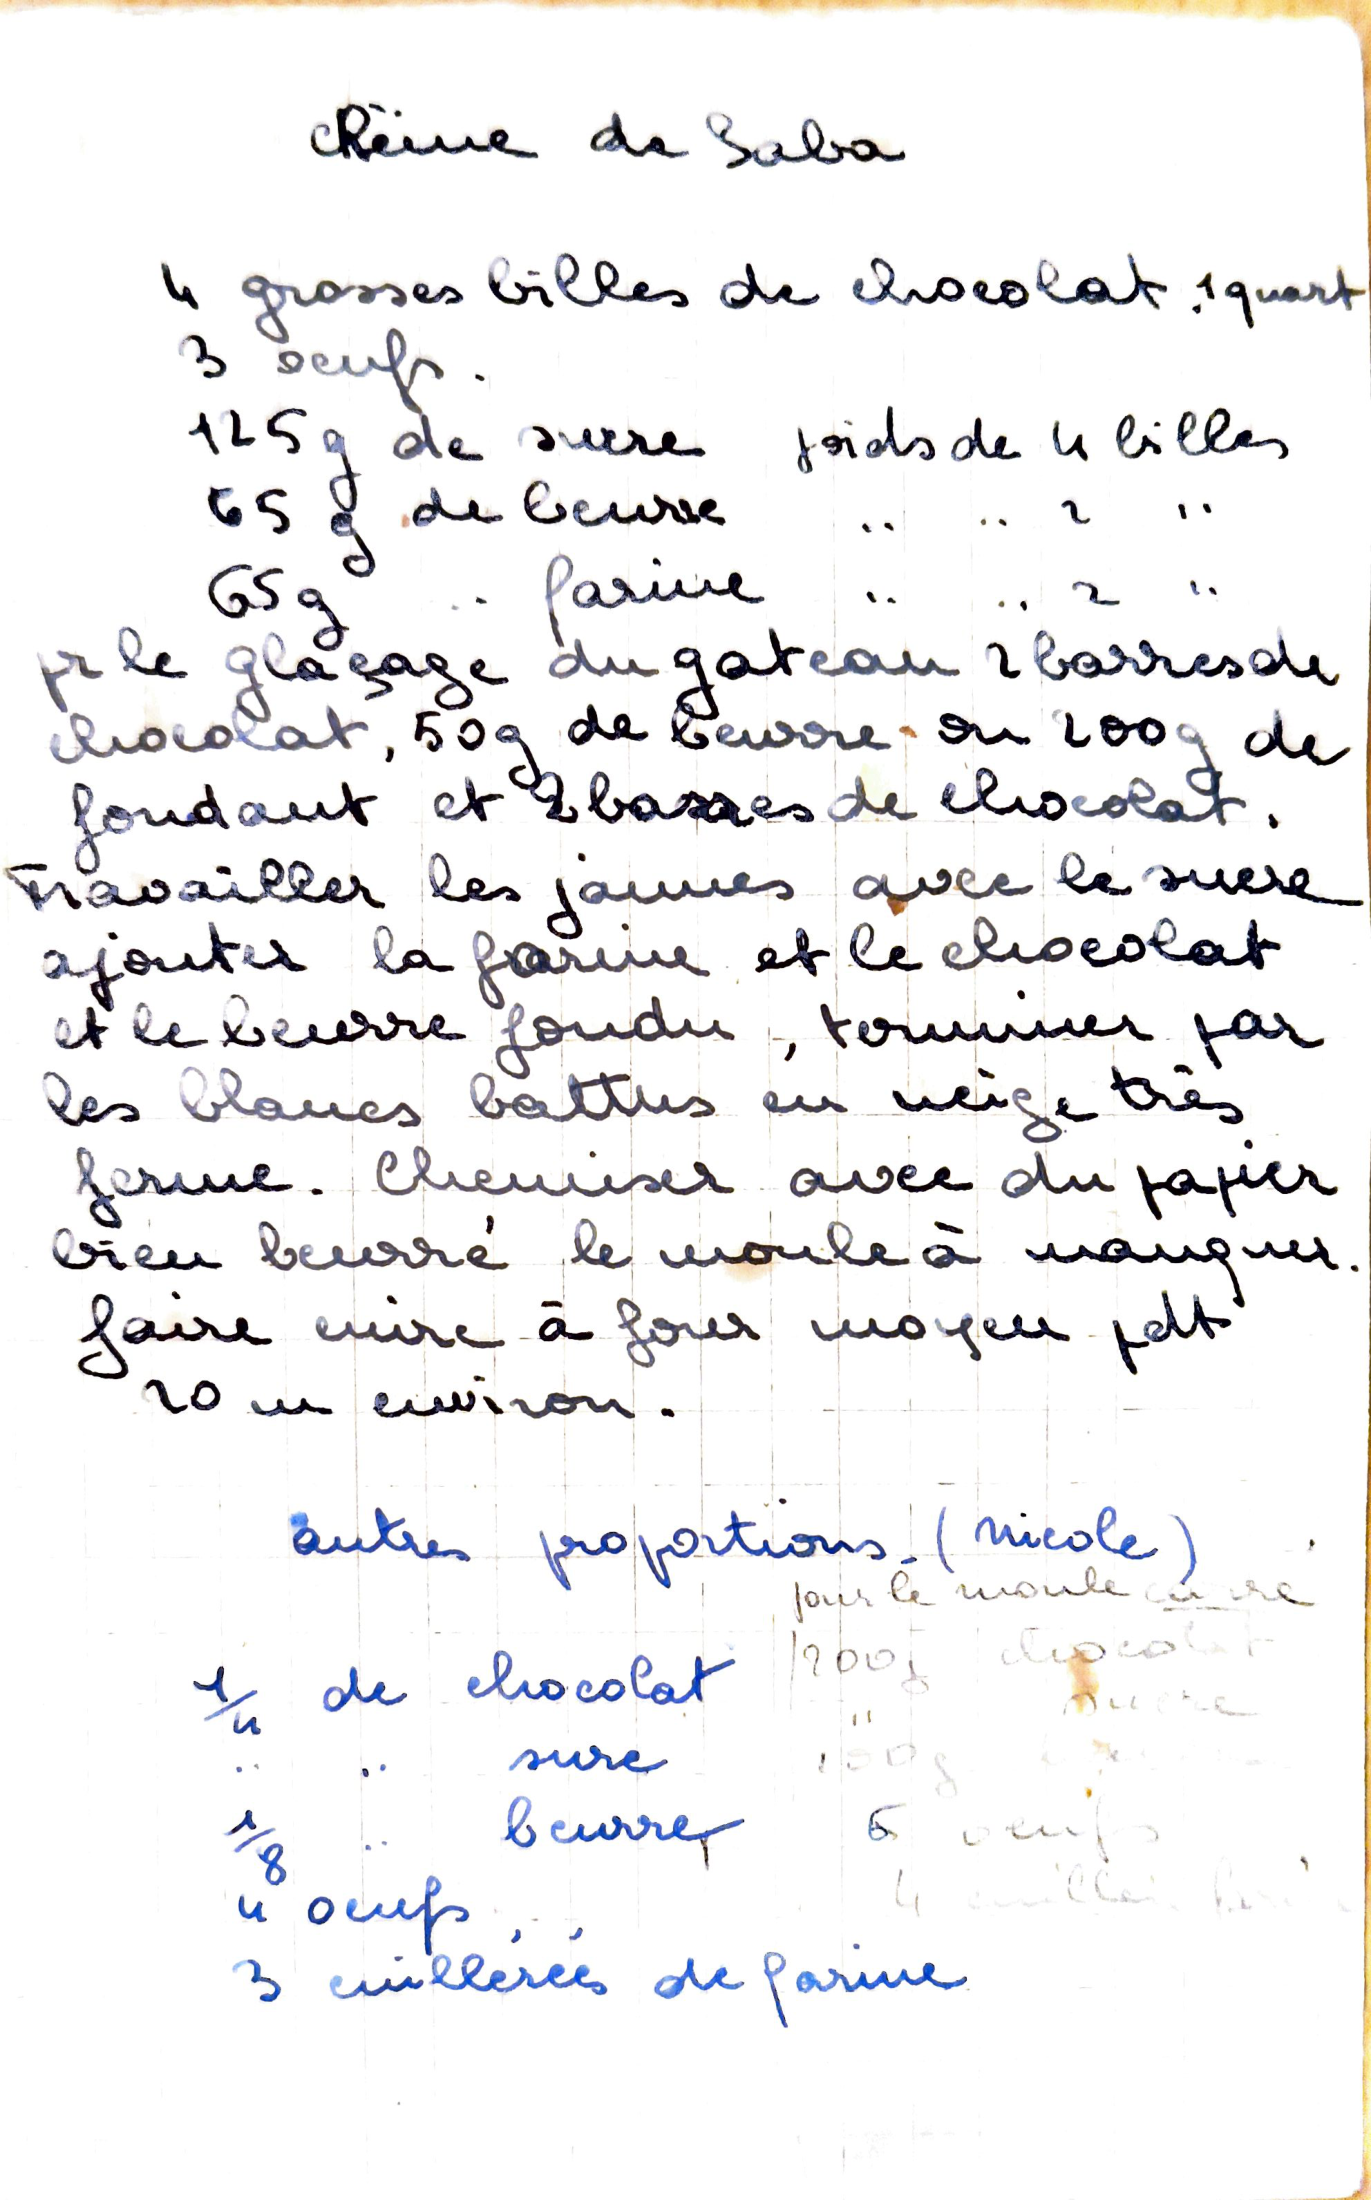 Reine de Saba
4 grosses billes de chocolat. 1 quart
3 oeufs.
125g de sucre poids de 4 billes
65 g de beurre " " 2 "
65g " farine " " 2 "
pr le glaçage du gateau 2 barres de
chocolat, 50g de beurre ou 200g de
fondant et 2 barres de chocolat.
Travailler les jaunes avec le sucre
ajouter la farine et le chocolat
et le beurre fondu, terminer par
les blancs battus en neige très
ferme. Chemiser avec du papier
bien beurré le moule à manquer.
faire cuire à four moyen pdt
20 m environ.
autres proportions (Nicole)
pour le moule
200g chocolat
" sucre
100g
6 oeufs
4
1/4 de chocolat
" " sucre
1/8 " beurre
4 oeufs
3 cuillérées de farine